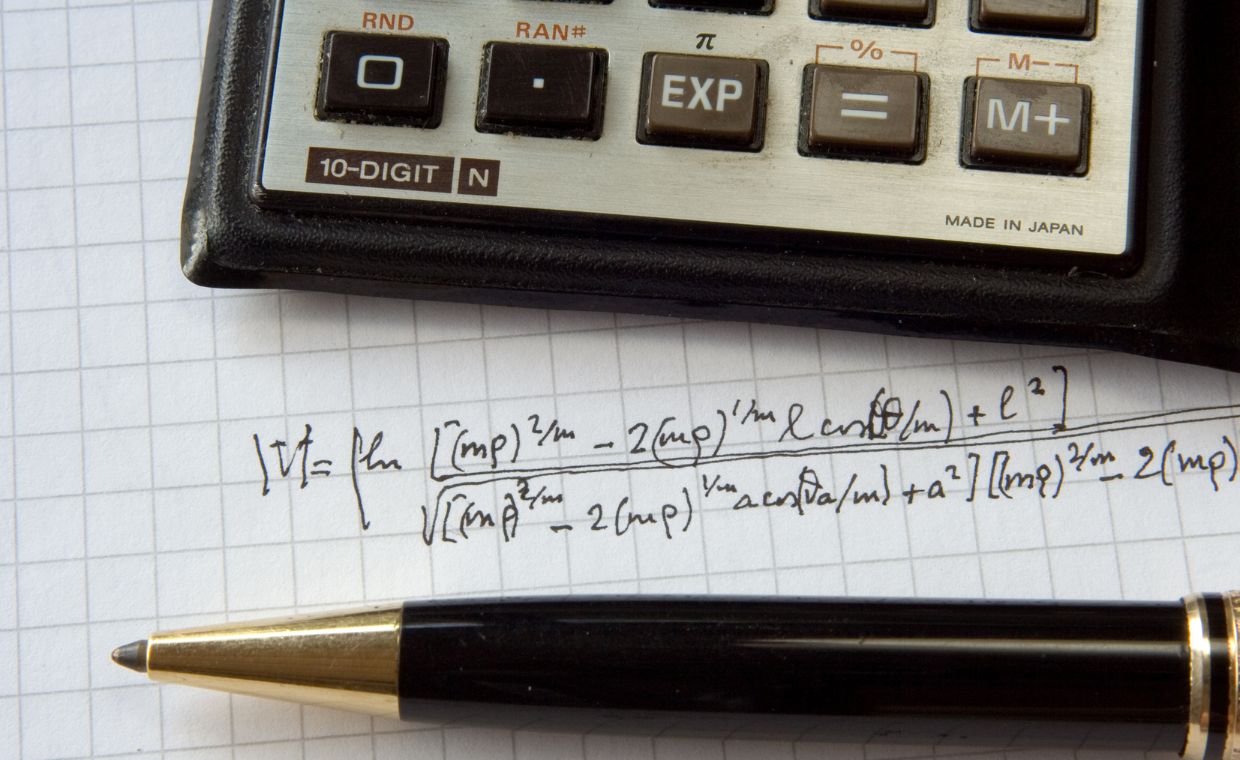 RND RAN# π % M−
0 · EXP = M+
10-DIGIT N
MADE IN JAPAN
|V|= |ln [(mρ)^2/m − 2(mρ)^1/m ℓ cos(θ/m) + ℓ^2]
√[(mρ)^2/m − 2(mρ)^1/m a cos(θa/m) + a^2][(mρ)^2/m − 2(mρ)